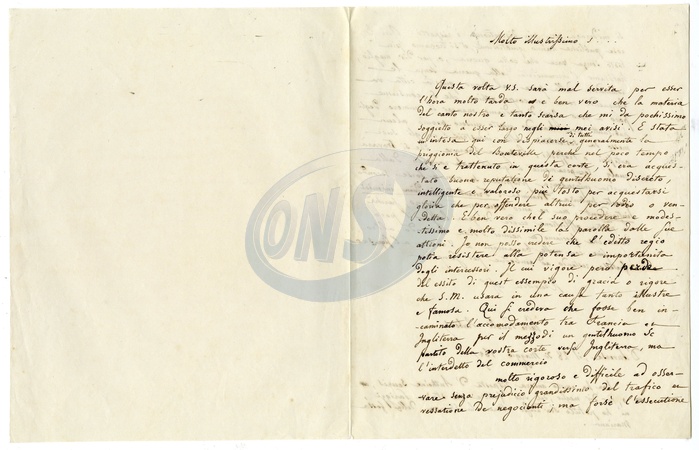 Molto illustrissimo S...
Questa volta V.S. sarà mal servita per esser
l'hora molto tarda e e ben vero che la materia
del canto nostro e tanto scarsa che mi da pochissimo
soggetto a esser largo negli miei avisi. E stata
di tutti
intesa qui con dispiacere generalmente la
priggionia del Bonteville perche nel poco tempo
che si e trattenuto in questa corte, si era acquis-
tato buona reputatione de gentilhuomo discreto,
intelligente e valoroso più tosto per acquestarsi
gloria che per offendere altrui per odio o ven-
detta. E ben vero chel suo procedere e modes-
tissimo e molto dissimile la parolla dalle sue
attioni. Jo non posso credere che l'edetto regio
potia resistere alla potenza e importanza
degli intercessori. Il cui vigore però
del essito di quest essempio di gracia o rigore
che S.M. usara in una causa tanto illustre
e famosa. Qui si credeva che fosse ben in-
caminato l'accomodamento tra Francia et
Ingliterra per il mezzo di un gentilhuomo
partito della vostra corte verso Ingliterra, ma
l'interdetto del commercio
molto rigoroso e difficile ad osser-
vare senza prejudicio grandissimo del trafico
de negocianti; ma forse l'essecutione
ONS